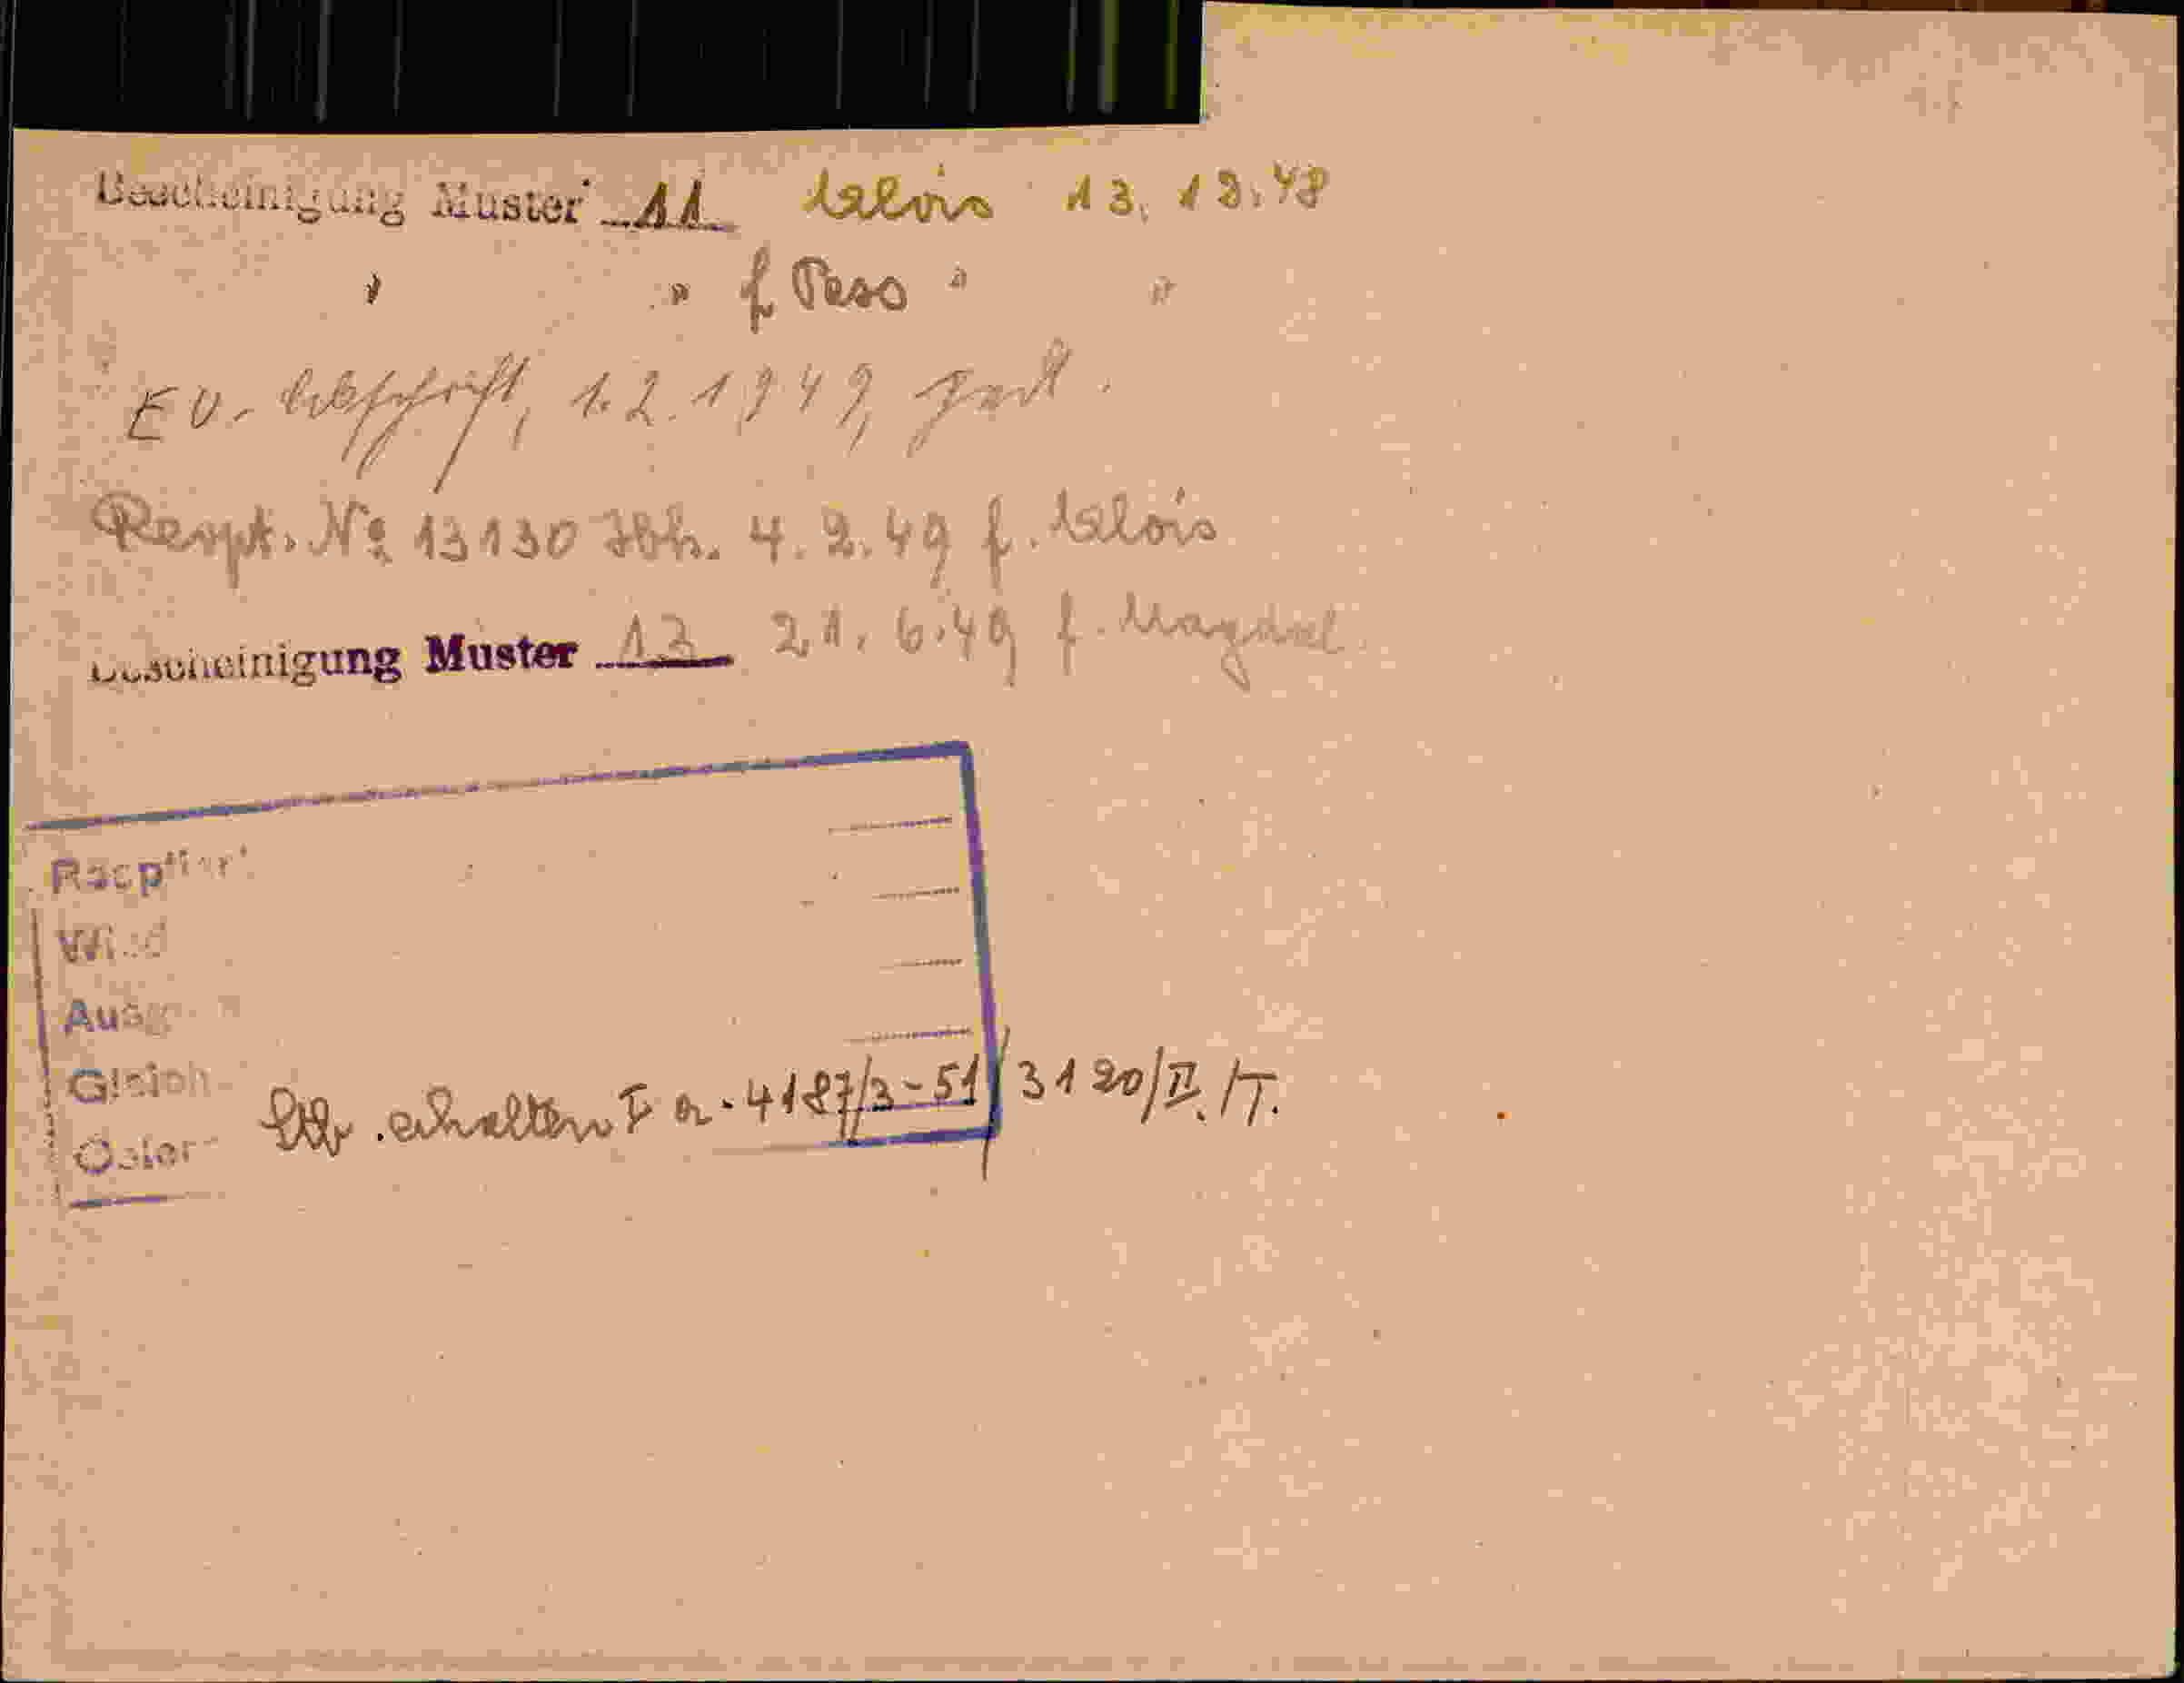 Bescheinigung Muster 11 Alois 13.12.48
" " f. Pass " "
EV. Abschrift, 1.2.1949,
Respt. No 13130 Ibk. 4.2.49 f. Alois
Bescheinigung Muster 13 21.6.49 f. Magdal.
Gleich
erhalten I a. 4187/3-51/3120/II./T.